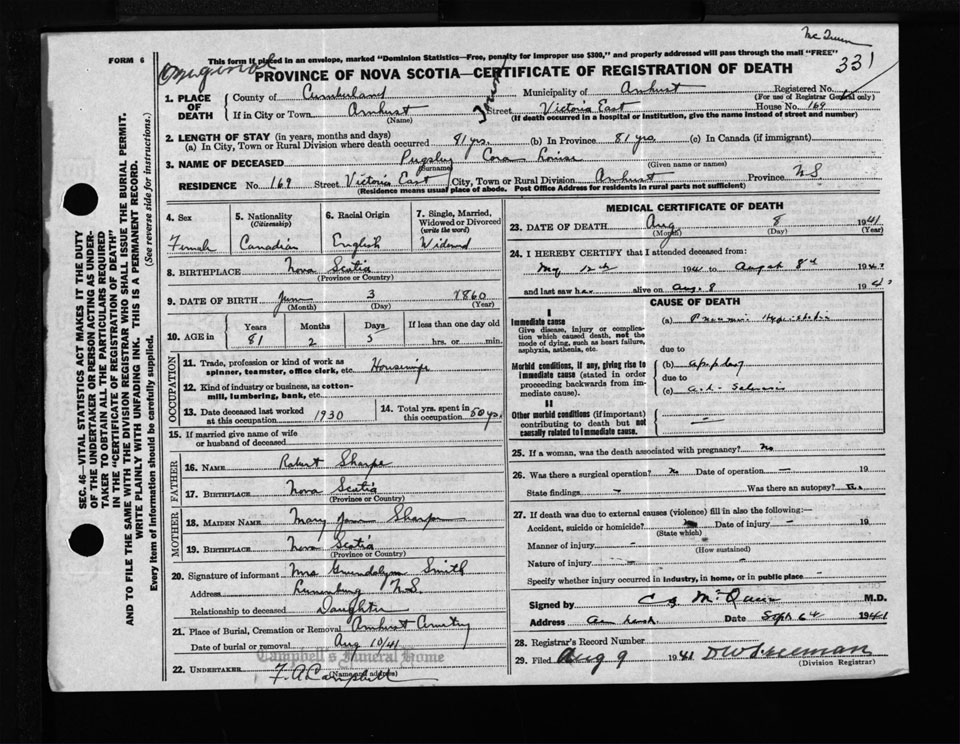 Mc Quinn
FORM 6
This form if placed in an envelope, marked "Dominion Statistics—Free, penalty for improper use $300," and properly addressed will pass through the mail "FREE"
331
PROVINCE OF NOVA SCOTIA—CERTIFICATE OF REGISTRATION OF DEATH
1. PLACE OF DEATH
County of Cumberland Municipality of Amherst Registered No.
(For use of Registrar General only)
If in City or Town Amherst Street Victoria East House No. 169
(Name) (If death occurred in a hospital or institution, give the name instead of street and number)
2. LENGTH OF STAY (in years, months and days)
(a) In City, Town or Rural Division where death occurred 81 yrs. (b) In Province 81 yrs. (c) In Canada (if immigrant)
3. NAME OF DECEASED Pugsley Cora Louise
(Surname) (Given name or names)
RESIDENCE No. 169 Street Victoria East City, Town or Rural Division Amherst Province NS
(Residence means usual place of abode. Post Office Address for residents in rural parts not sufficient)
4. Sex Female
5. Nationality (Citizenship) Canadian
6. Racial Origin English
7. Single, Married, Widowed or Divorced (write the word) Widowed
8. BIRTHPLACE Nova Scotia
(Province or Country)
9. DATE OF BIRTH June 3 1860
(Month) (Day) (Year)
10. AGE in Years Months Days If less than one day old
81 2 5 hrs. or min.
OCCUPATION
11. Trade, profession or kind of work as spinner, teamster, office clerk, etc. Housewife
12. Kind of industry or business, as cotton-mill, lumbering, bank, etc.
13. Date deceased last worked at this occupation 1930
14. Total yrs. spent in this occupation 50 yrs.
15. If married give name of wife or husband of deceased
FATHER
16. NAME Robert Sharpe
17. BIRTHPLACE Nova Scotia
(Province or Country)
MOTHER
18. MAIDEN NAME Mary Jane Sharpe
19. BIRTHPLACE Nova Scotia
(Province or Country)
20. Signature of informant Mrs Gwendolyn Smith
Address Lunenburg N.S.
Relationship to deceased Daughter
21. Place of Burial, Cremation or Removal Amherst Cemetery
Date of burial or removal Aug 10/41
Campbell's Funeral Home
22. UNDERTAKER F. A. Campbell
(Name and address)
MEDICAL CERTIFICATE OF DEATH
23. DATE OF DEATH Aug 8 1941
(Month) (Day) (Year)
24. I HEREBY CERTIFY that I attended deceased from:
May 12th 1941 to August 8th 194
and last saw her alive on Aug. 8 194
CAUSE OF DEATH
I
Immediate cause
Give disease, injury or complication which caused death, not the mode of dying, such as heart failure, asphyxia, asthenia, etc.
(a) Pneumonia Hypostatic
due to
Morbid conditions, if any, giving rise to immediate cause (stated in order proceeding backwards from immediate cause).
(b) apoplexy
due to
(c)
II
Other morbid conditions (if important) contributing to death but not causally related to immediate cause.
25. If a woman, was the death associated with pregnancy? No
26. Was there a surgical operation? No Date of operation — 19
State findings - Was there an autopsy? No
27. If death was due to external causes (violence) fill in also the following:—
Accident, suicide or homicide? Date of injury - 19
(State which)
Manner of injury -
(How sustained)
Nature of injury -
Specify whether injury occurred in industry, in home, or in public place -
Signed by McQueen M.D.
Address Amherst Date Sept 6 1941
28. Registrar's Record Number
29. Filed Aug 9 1941 D W Freeman
(Division Registrar)
SEC. 46—VITAL STATISTICS ACT MAKES IT THE DUTY
OF THE UNDERTAKER OR PERSON ACTING AS UNDER-
TAKER TO OBTAIN ALL THE PARTICULARS REQUIRED
IN THE "CERTIFICATE OF REGISTRATION OF DEATH"
AND TO FILE THE SAME WITH THE DIVISION REGISTRAR WHO SHALL ISSUE THE BURIAL PERMIT.
WRITE PLAINLY WITH UNFADING INK. THIS IS A PERMANENT RECORD.
Every item of information should be carefully supplied. (See reverse side for instructions.)